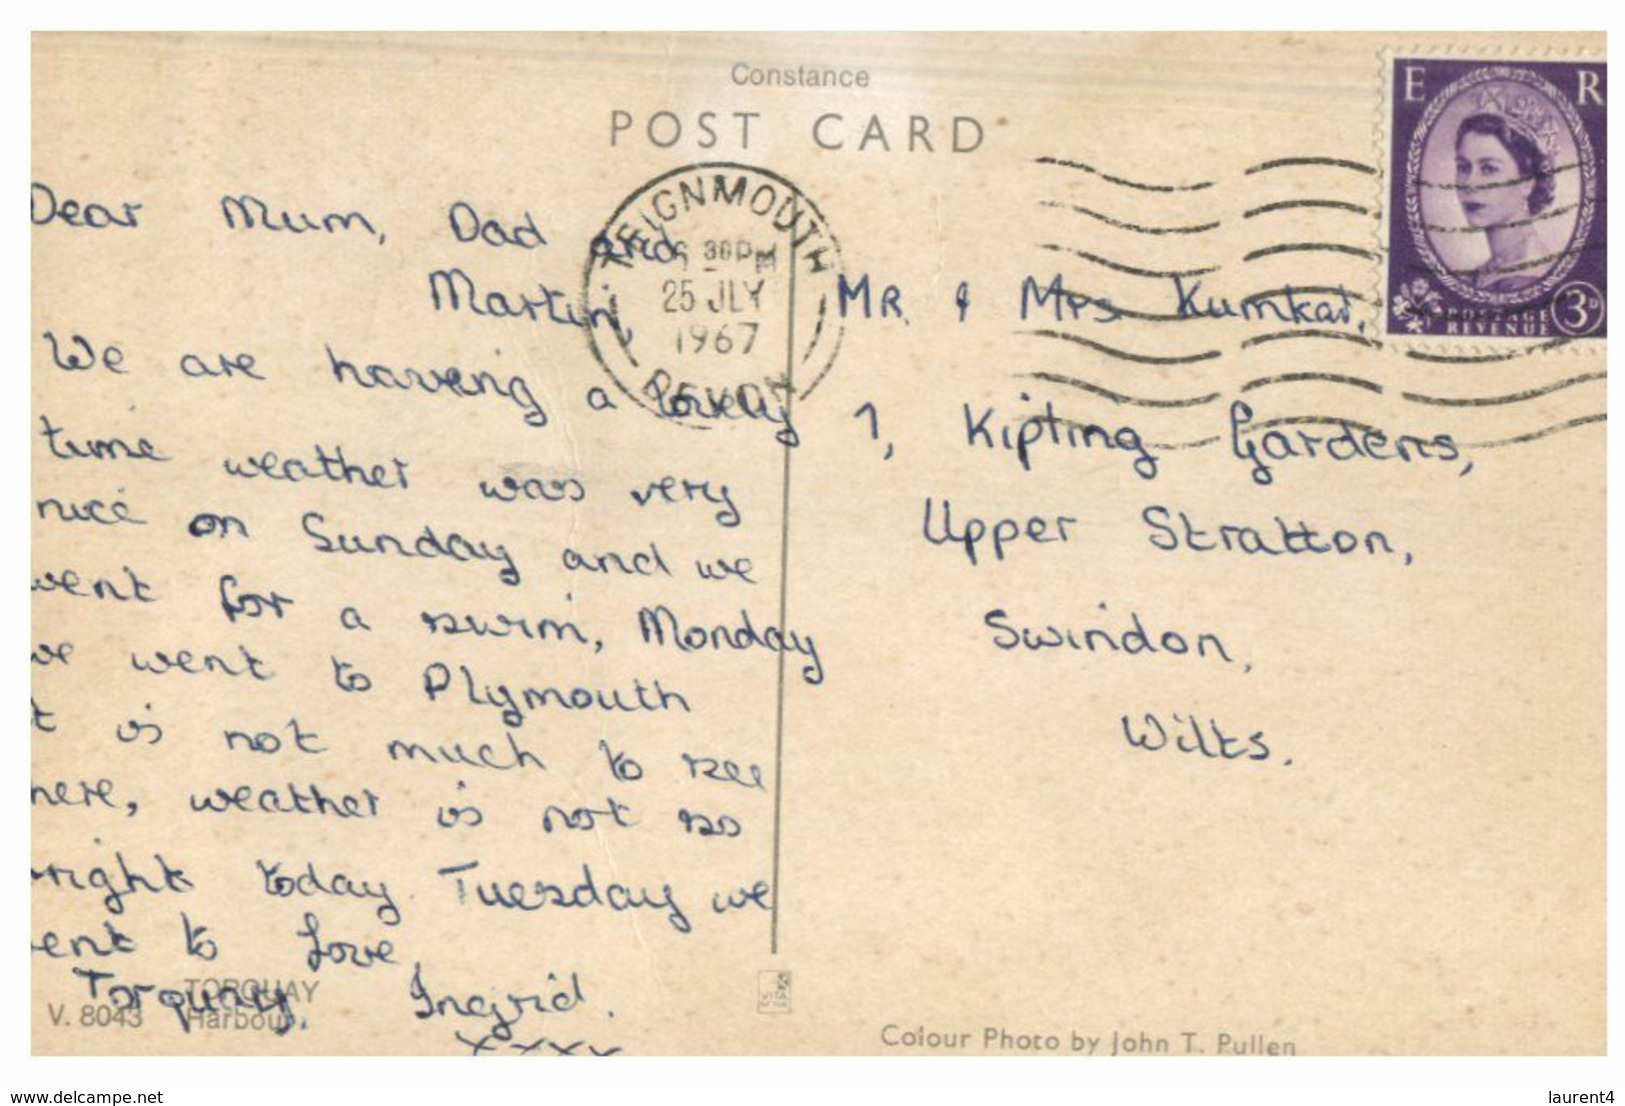 Constance
POST CARD
E R
TEIGNMOUTH
6 30PM
25 JLY
1967
DEVON
POSTAGE
REVENUE
3D
Dear Mum, Dad and
Martin,
We are having a lovely
time weather was very
nice on Sunday and we
went for a swim, Monday
we went to Plymouth
t is not much to see
here, weather is not so
right today. Tuesday we
ent to Love,
Torquay. Ingrid.
xxxx
MR. & Mrs Kumkat,
7, Kipling Gardens,
Upper Stratton,
Swindon,
Wilts.
TORQUAY
V. 8043 Harbour.
Colour Photo by John T. Pullen
www.delcampe.net
laurent4